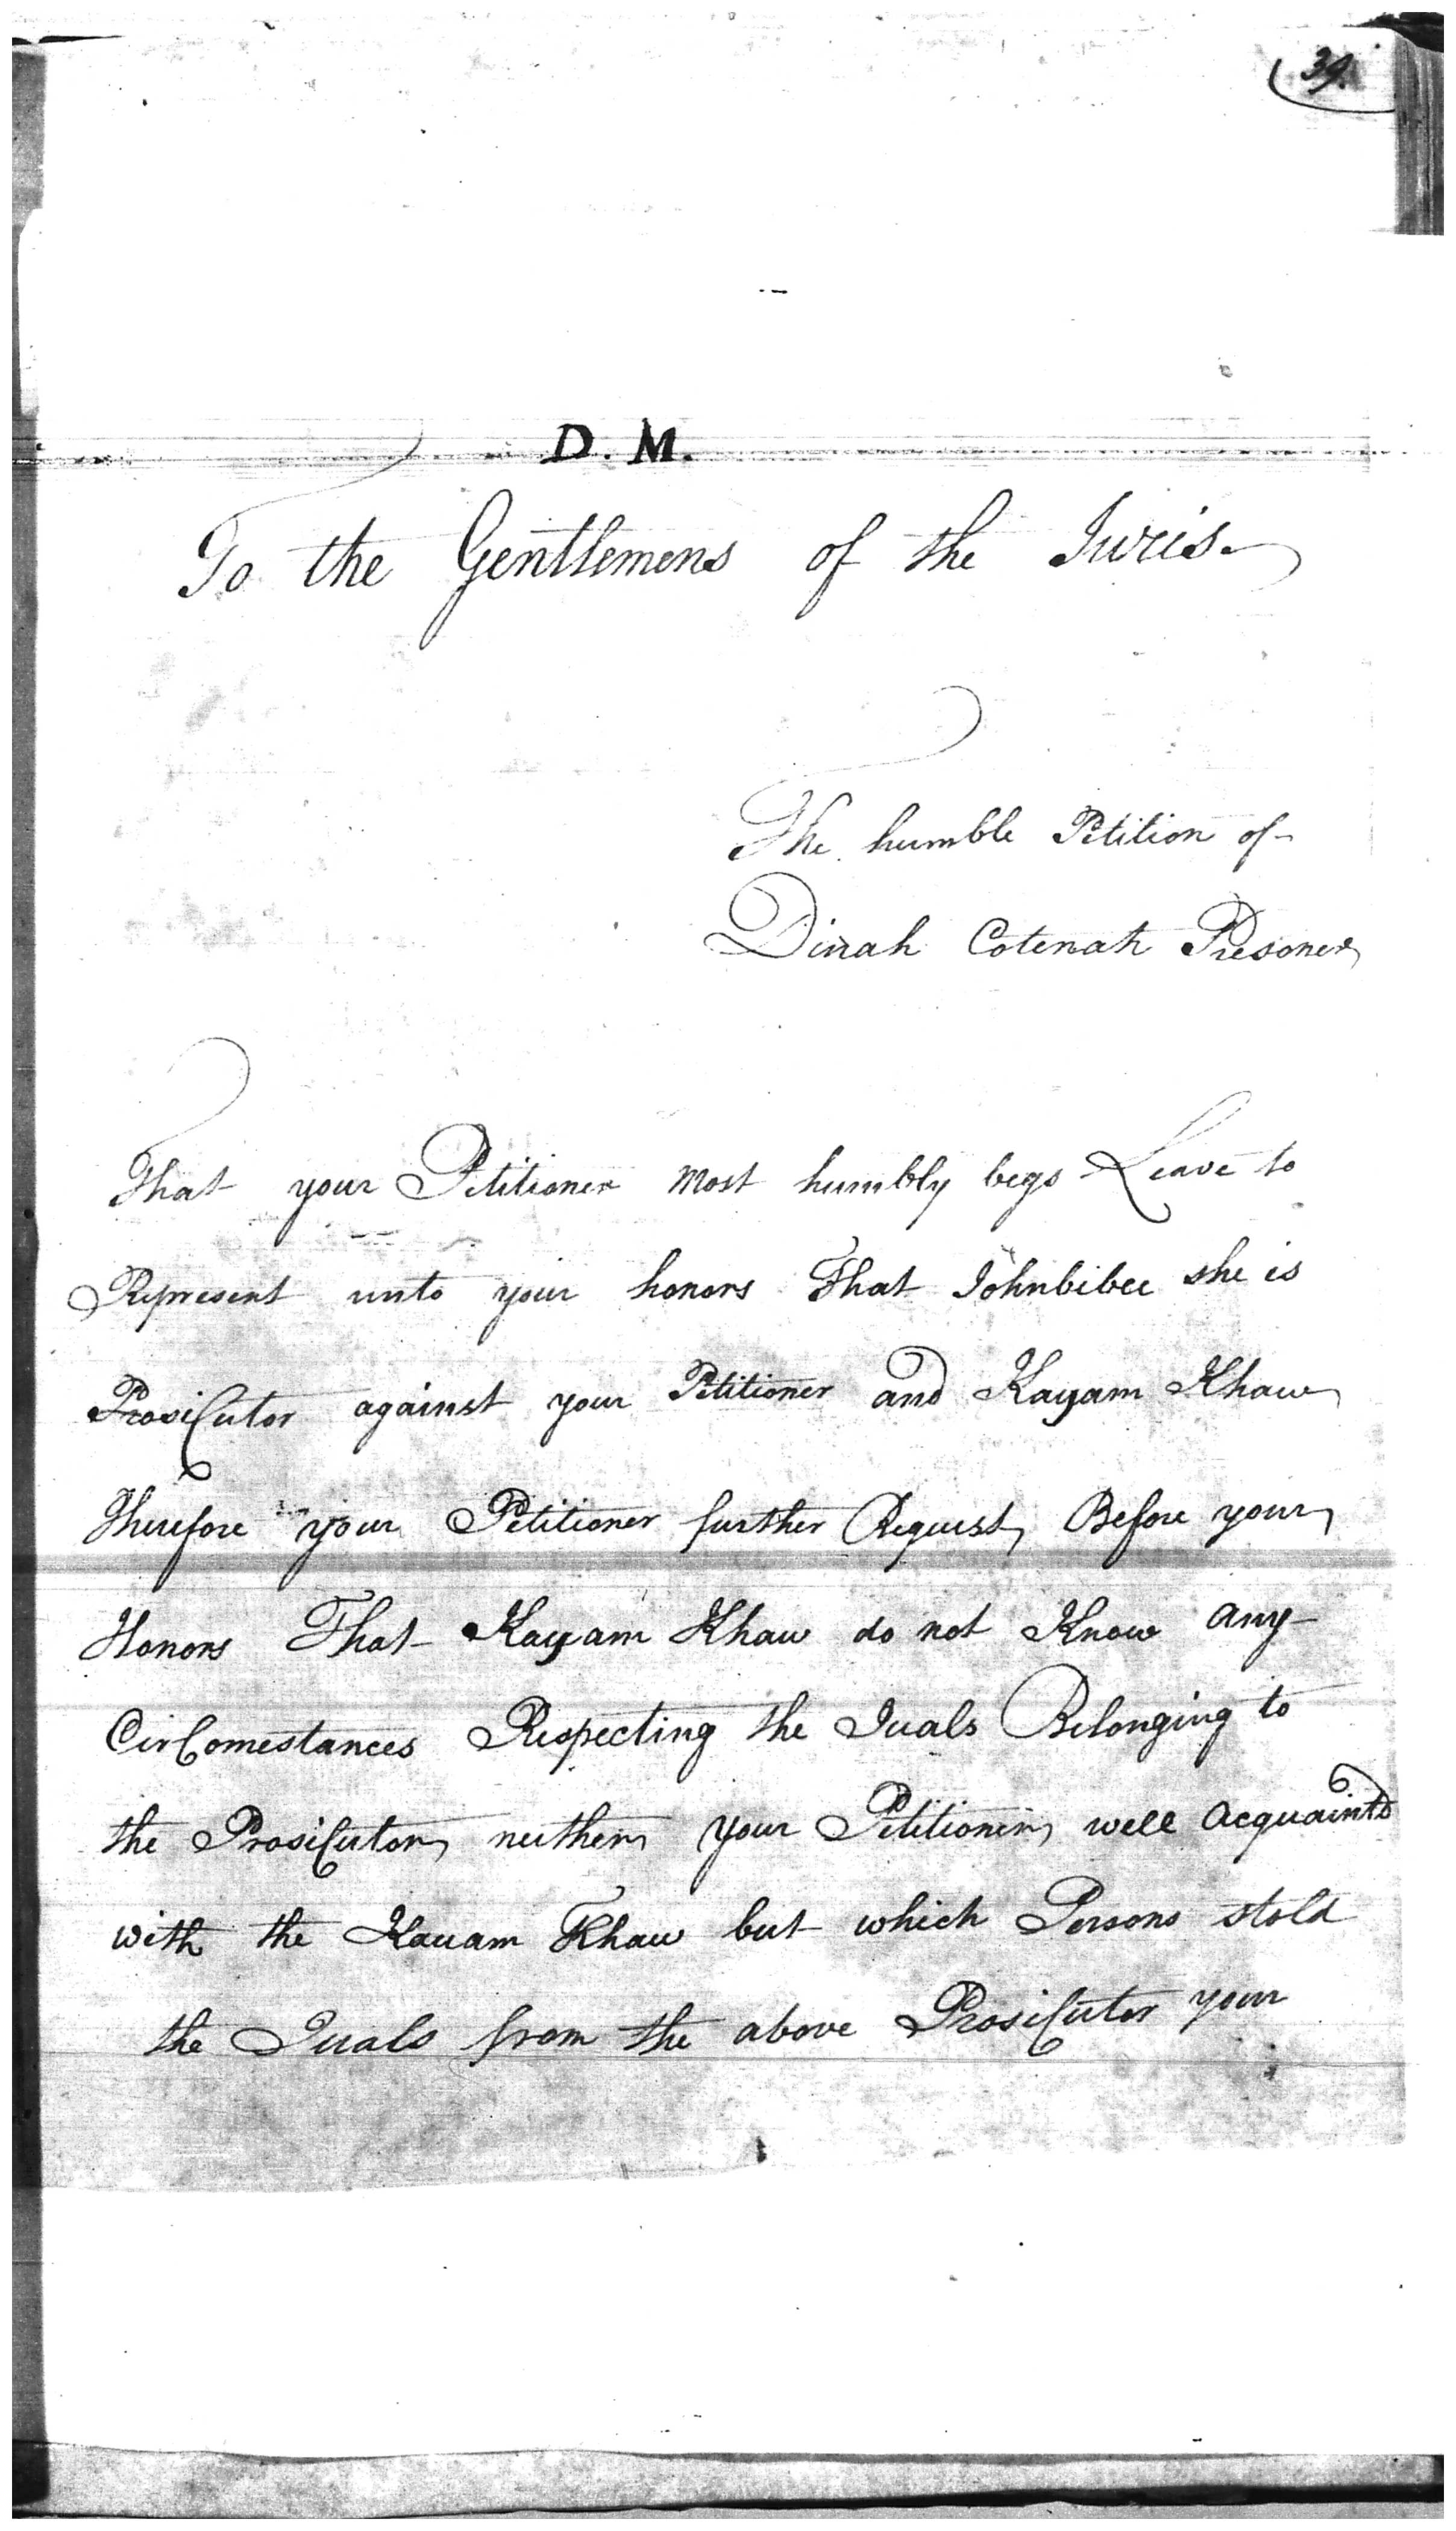 39.
D. M.
To the Gentlemens of the Juris.
The humble Petition of
Dinah Cotenah Presoner
That your Petitioner most humbly begs Leave to
Represent unto your honors That Johnbibee she is
Prosicutor against your Petitioner and Kayam Khaw
Therefore your Petitioner further Request Before your
Honors That Kayam Khaw do not Know any
Circomestances Respecting the Juals Belonging to
the Prosicutor neither your Petitioner well acquainted
with the Kauam Khaw but which Persons stold
the Juals from the above Prosicutor your